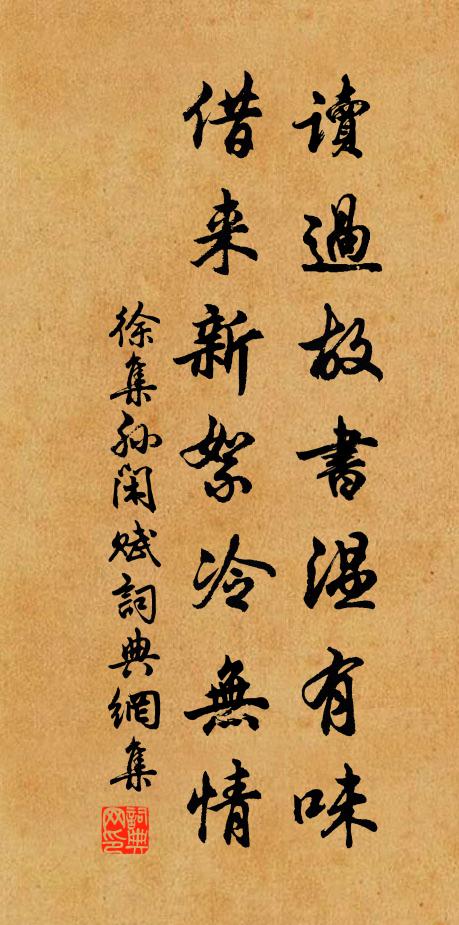 讀過故書温有味
借来新絮冷無情
徐集孙閑賦詞典網集
詞典網印